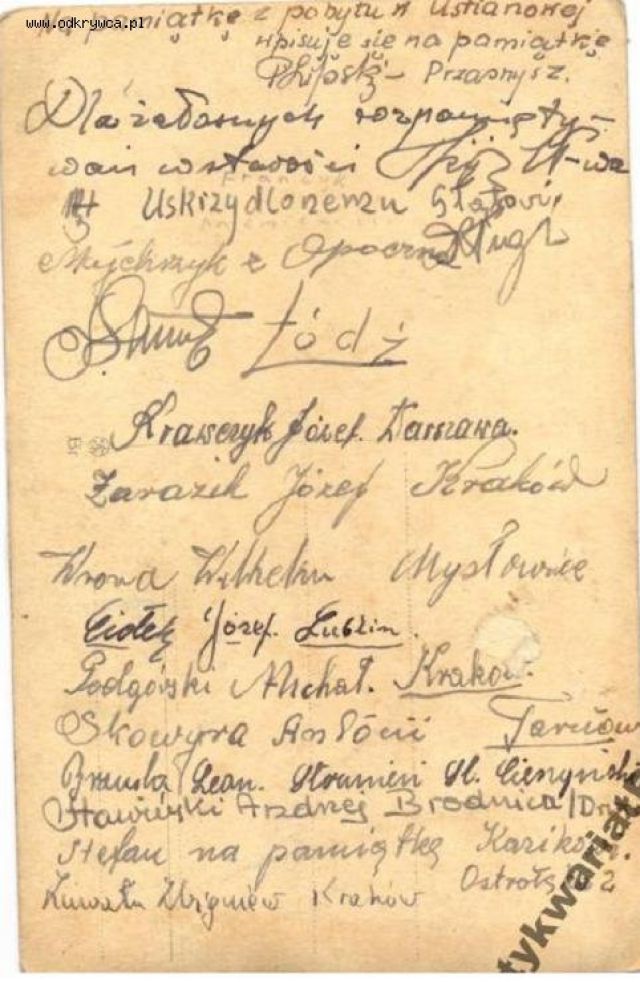 www.odkrywca.pl
Na pamiątkę z pobytu w Ustianowej
wpisuje się na pamiątkę
Przasnysz.
Dla żałosnych rozpamięty-
wań w starości W-wa
Uskrzydlonemu
z Opoczna
Łódź
Krawczyk Józef. Warszawa.
Zarazik Józef Kraków
Wrona Wilhelm Mysłowice
Ciołek Józef. Lublin.
Podgórski Michał. Kraków.
Skowyra Antoni Tarnów
Leon. Strumień Śl. Cieszyński
Stawiński Andrzej Brodnica/Dr
Stefan na pamiątkę Kazikowi.
Ostrołęka
Zbigniew Kraków
tykwariat